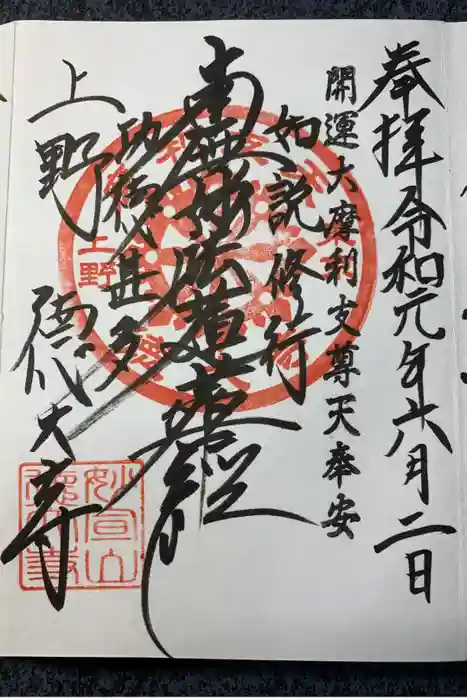 奉拝令和元年六月二日
開運大摩利支尊天奉安
如説修行
南無妙法蓮華経
功徳甚多
上野徳大寺
上野
妙宣山